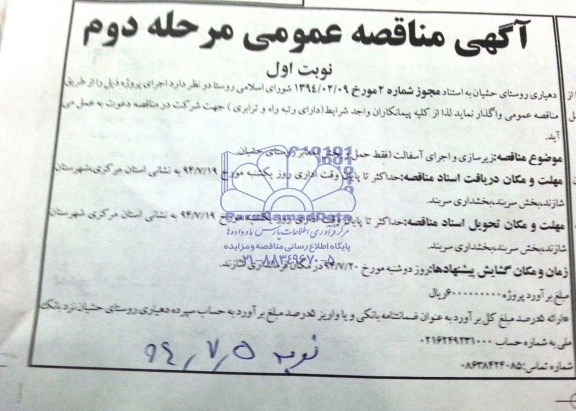 آگهی مناقصه عمومی مرحله دوم
نوبت اول
دهیاری روستای حثیان به استناد مجوز شماره ۲ مورخ ۱۳۹۴/۰۲/۰۹ شورای اسلامی روستا در نظر دارد اجرای پروژه ذیل را از طریق
مناقصه عمومی واگذار نماید لذا از کلیه پیمانکاران واجد شرایط (دارای رتبه راه و ترابری) جهت شرکت در مناقصه دعوت به عمل می
آید.
موضوع مناقصه: زیرسازی و اجرای آسفالت (فقط حمل معابر روستای حثیان.
مهلت و مکان دریافت اسناد مناقصه: حداکثر تا پایان وقت اداری روز یکشنبه مورخ ۹۴/۷/۱۹ به نشانی استان مرکزی، شهرستان
شازند، بخش سربند، بخشداری سربند.
مهلت و مکان تحویل اسناد مناقصه: حداکثر تا پایان وقت اداری روز یکشنبه مورخ ۹۴/۷/۱۹ به نشانی استان مرکزی شهرستان
شازند، بخش سربند، بخشداری سربند.
زمان و مکان گشایش پیشنهادها: روز دوشنبه مورخ ۹۴/۷/۲۰ در مکان فرمانداری شازند.
مبلغ برآورد پروژه ۶۰۰۰۰۰۰۰۰ ریال
*ارائه ۵ درصد مبلغ کل برآورد به عنوان ضمانتنامه بانکی و یا واریز ۵ درصد مبلغ برآورد به حساب سپرده دهیاری روستای حثیان نزد بانک
ملی به شماره حساب ۰۲۱۶۲۴۹۲۳۱۰۰۰
شماره تماس: ۰۸۶۳۸۴۲۴۰۸۵
ParsNamadData
مرکز فرآوری اطلاعات پارس نماد داده ها
پایگاه اطلاع رسانی مناقصه و مزایده
۰۲۱-۸۸۳۴۹۶۷۰-۵
۹۴/۷/۵